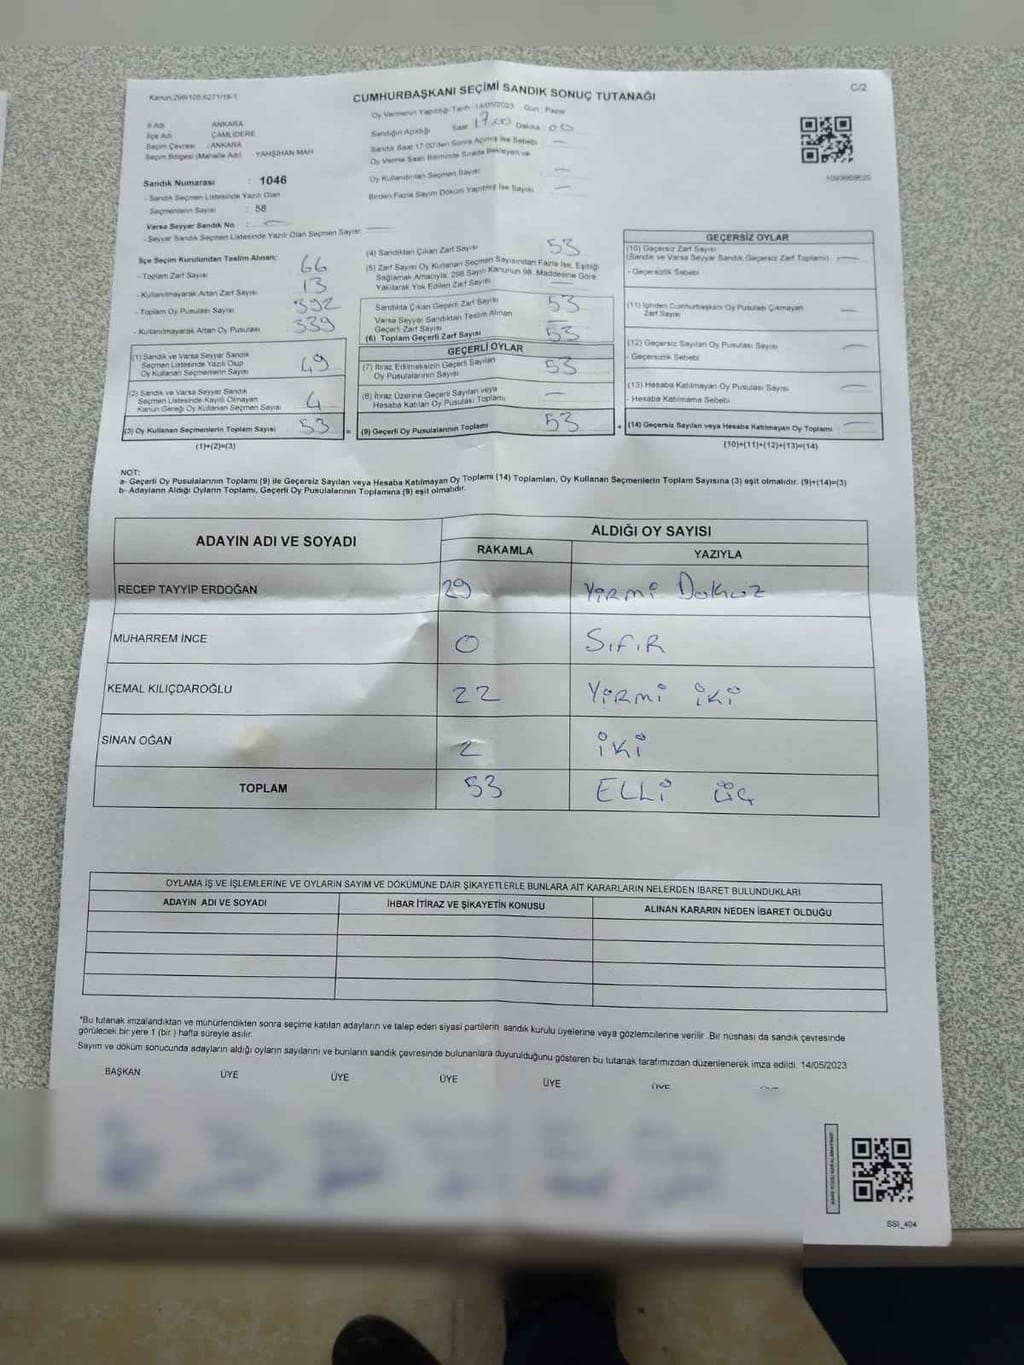 Kanun:298/105,6271/18-1
C/2
CUMHURBAŞKANI SEÇİMİ SANDIK SONUÇ TUTANAĞI
Oy Vermenin Yapıldığı Tarih : 14/05/2023 Gün : Pazar
İl Adı ANKARA
İlçe Adı ÇAMLIDERE
Seçim Çevresi : ANKARA
Seçim Bölgesi (Mahalle Adı) YAHŞİHAN MAH
Sandığın Açıldığı Saat 17.00 Dakika 00
Sandık Saat 17.00'den Sonra Açılmış İse Sebebi —
Oy Verme Saati Bitiminde Sırada Bekleyen ve
Oy Kullandırılan Seçmen Sayısı —
Birden Fazla Sayım Döküm Yapılmış İse Sayısı —
Sandık Numarası : 1046
- Sandık Seçmen Listesinde Yazılı Olan
Seçmenlerin Sayısı : 58
Varsa Seyyar Sandık No : —
- Seyyar Sandık Seçmen Listesinde Yazılı Olan Seçmen Sayısı —
İlçe Seçim Kurulundan Teslim Alınan;
- Toplam Zarf Sayısı 66
- Kullanılmayarak Artan Zarf Sayısı 13
- Toplam Oy Pusulası Sayısı 392
- Kullanılmayarak Artan Oy Pusulası 339
(1) Sandık ve Varsa Seyyar Sandık
Seçmen Listesinde Yazılı Olup
Oy Kullanan Seçmenlerin Sayısı 49
(2) Sandık ve Varsa Seyyar Sandık
Seçmen Listesinde Kayıtlı Olmayan
Kanun Gereği Oy Kullanan Seçmen Sayısı 4
(3) Oy Kullanan Seçmenlerin Toplam Sayısı 53
(1)+(2)=(3)
(4) Sandıktan Çıkan Zarf Sayısı 53
(5) Zarf Sayısı Oy Kullanan Seçmen Sayısından Fazla İse, Eşitliği
Sağlamak Amacıyla; 298 Sayılı Kanunun 98. Maddesine Göre
Yakılarak Yok Edilen Zarf Sayısı —
Sandıkta Çıkan Geçerli Zarf Sayısı 53
Varsa Seyyar Sandıktan Teslim Alınan
Geçerli Zarf Sayısı —
(6) Toplam Geçerli Zarf Sayısı 53
GEÇERLİ OYLAR
(7) İtiraz Edilmeksizin Geçerli Sayılan
Oy Pusulalarının Sayısı 53
(8) İtiraz Üzerine Geçerli Sayılan veya
Hesaba Katılan Oy Pusulası Toplamı —
= (9) Geçerli Oy Pusulalarının Toplamı 53
GEÇERSİZ OYLAR
(10) Geçersiz Zarf Sayısı
(Sandık ve Varsa Seyyar Sandık Geçersiz Zarf Toplamı) —
- Geçersizlik Sebebi
(11) İçinden Cumhurbaşkanı Oy Pusulası Çıkmayan
Zarf Sayısı —
(12) Geçersiz Sayılan Oy Pusulası Sayısı —
- Geçersizlik Sebebi
(13) Hesaba Katılmayan Oy Pusulası Sayısı —
- Hesaba Katılmama Sebebi
+ (14) Geçersiz Sayılan veya Hesaba Katılmayan Oy Toplamı —
(10)+(11)+(12)+(13)=(14)
NOT:
a- Geçerli Oy Pusulalarının Toplamı (9) ile Geçersiz Sayılan veya Hesaba Katılmayan Oy Toplamı (14) Toplamları, Oy Kullanan Seçmenlerin Toplam Sayısına (3) eşit olmalıdır. (9)+(14)=(3)
b- Adayların Aldığı Oyların Toplamı, Geçerli Oy Pusulalarının Toplamına (9) eşit olmalıdır.
ADAYIN ADI VE SOYADI
ALDIĞI OY SAYISI
RAKAMLA YAZIYLA
RECEP TAYYİP ERDOĞAN 29 YİRMİ DOKUZ
MUHARREM İNCE 0 SIFIR
KEMAL KILIÇDAROĞLU 22 YİRMİ İKİ
SİNAN OĞAN 2 İKİ
TOPLAM 53 ELLİ ÜÇ
OYLAMA İŞ VE İŞLEMLERİNE VE OYLARIN SAYIM VE DÖKÜMÜNE DAİR ŞİKAYETLERLE BUNLARA AİT KARARLARIN NELERDEN İBARET BULUNDUKLARI
ADAYIN ADI VE SOYADI İHBAR İTİRAZ VE ŞİKAYETİN KONUSU ALINAN KARARIN NEDEN İBARET OLDUĞU
*Bu tutanak imzalandıktan ve mühürlendikten sonra seçime katılan adayların ve talep eden siyasi partilerin sandık kurulu üyelerine veya gözlemcilerine verilir .Bir nüshası da sandık çevresinde
görülecek bir yere 1 (bir ) hafta süreyle asılır.
Sayım ve döküm sonucunda adayların aldığı oyların sayılarını ve bunların sandık çevresinde bulunanlara duyurulduğunu gösteren bu tutanak tarafımızdan düzenlenerek imza edildi. 14/05/2023
BAŞKAN ÜYE ÜYE ÜYE ÜYE ÜYE
SSI_404